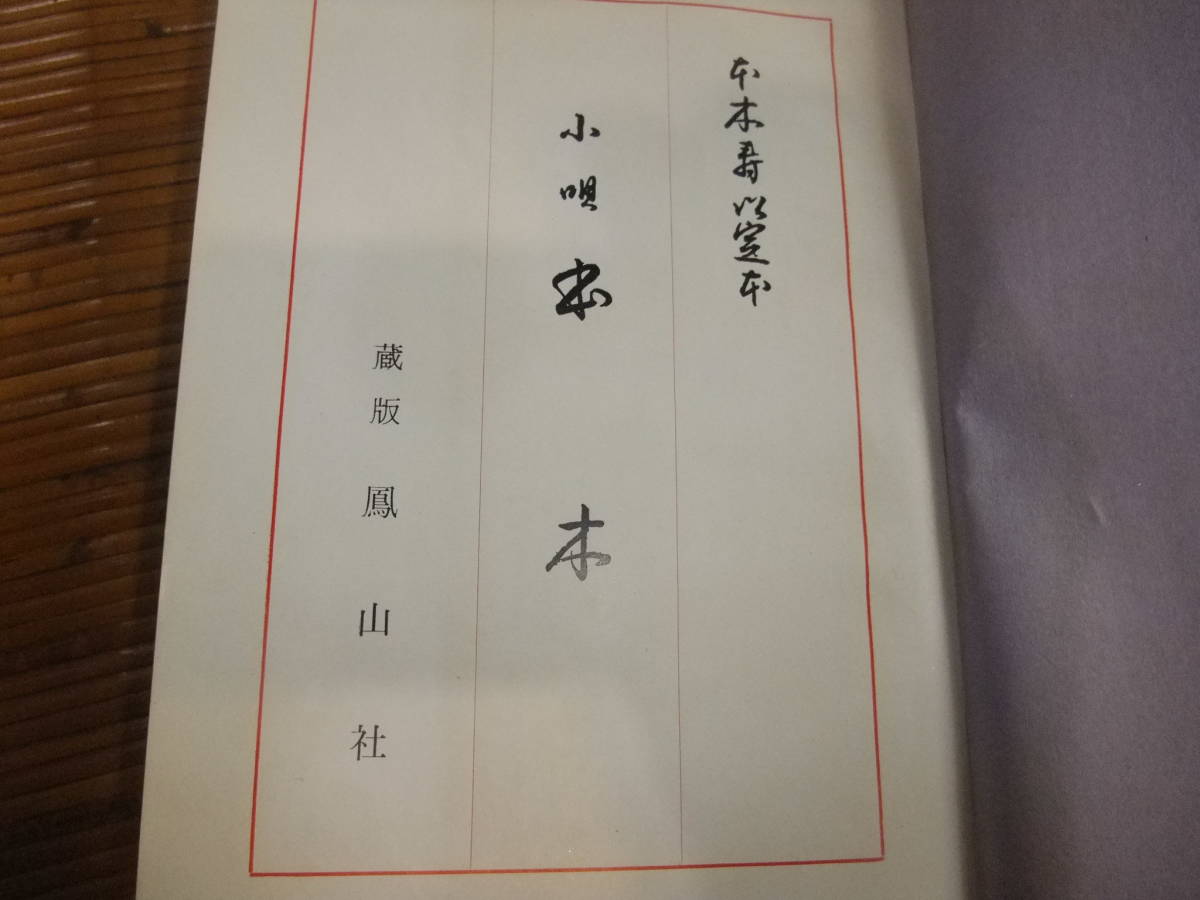 本木寿以定本
小唄本木
蔵版 鳳山社